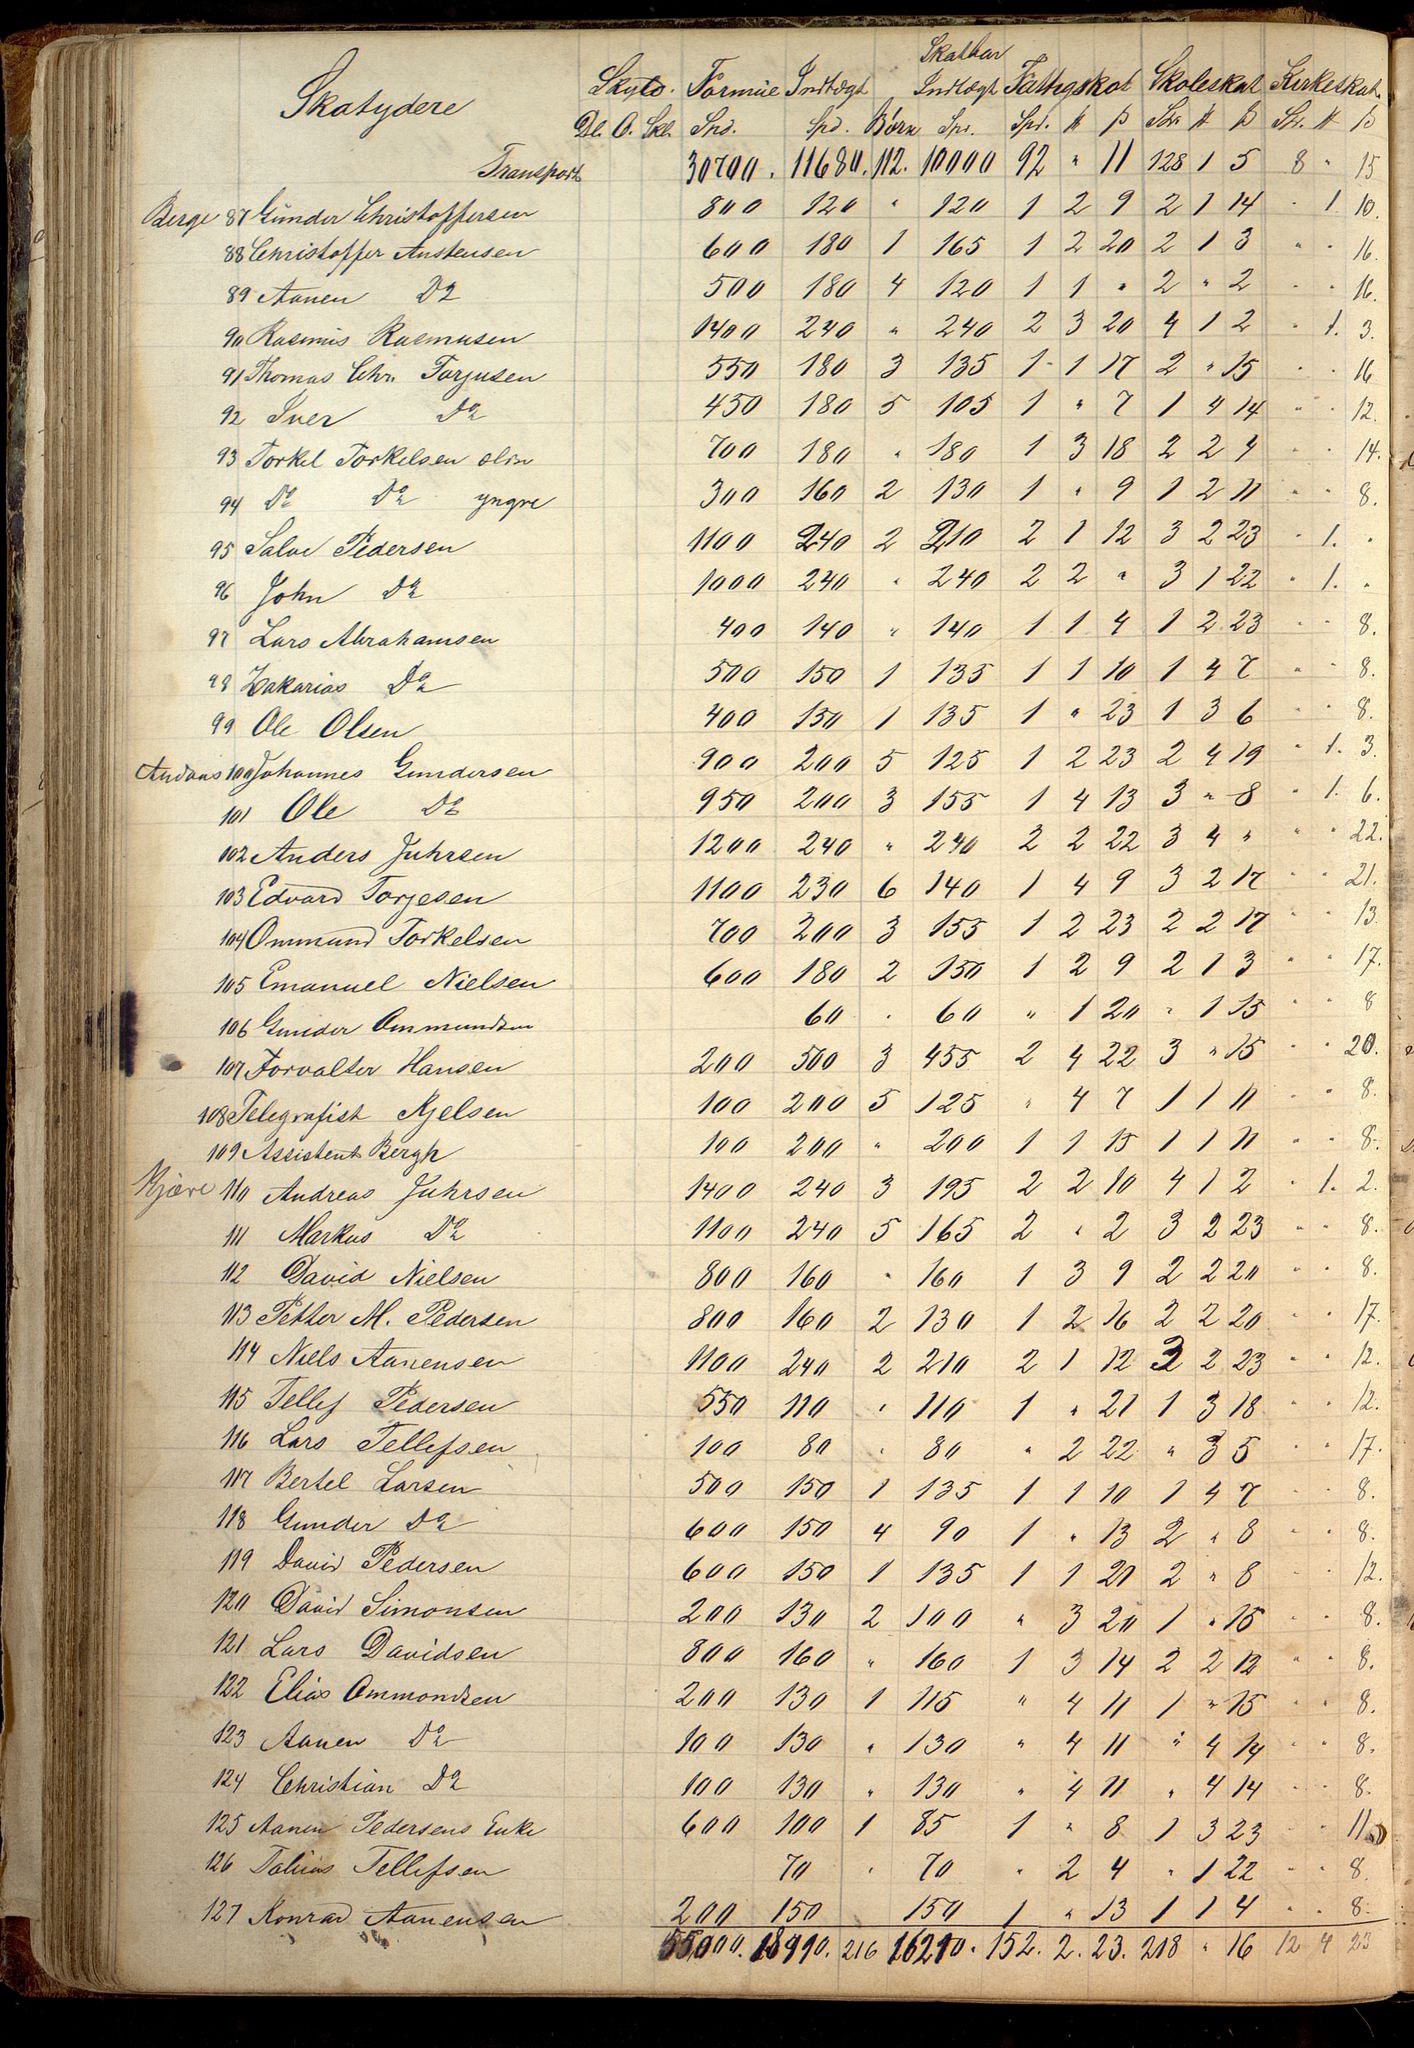 Skatydere Skyld. Formue Indtægt Skatbar Indtægt Fattigskat Skoleskat Kirkeskat.
Dl. O. Skl. Spd. Spd. Børn Spd. Spd. # β Spd. # β Spd. # β
Transport 30700. 11680. 112. 10000 92 " 11 128 1 5 8 " 15
Berge 87 Gunder Christoffersen 800 120 " 120 1 2 9 2 1 14 " 1. 10.
88 Christoffer Austensen 600 180 1 165 1 2 20 2 1 3 " " 16.
89 Aanen Do 500 180 4 120 1 1 " 2 " 2 " " 16.
90 Rasmus Rasmusen 1400 240 " 240 2 3 20 4 1 2 " 1. 3.
91 Thomas Chr. Torjusen 550 180 3 135 1 1 17 2 " 15 " " 16
92 Iver Do 450 180 5 105 1 " 7 1 4 14 " " 12.
93 Torkel Torkelsen 700 180 " 180 1 3 18 2 2 4 " " 14.
94 Do Do yngre 300 160 2 130 1 " 9 1 2 11 " " 8.
95 Salve Pedersen 1100 240 2 210 2 1 12 3 2 23 " 1. "
96 John Do 1000 240 " 240 2 2 " 3 1 22 " 1. "
97 Lars Abrahamsen 400 140 " 140 1 1 4 1 2 23 " " 8.
98 Zakarias Do 500 150 1 135 1 1 10 1 4 7 " " 8.
99 Ole Olsen 400 150 1 135 1 " 23 1 3 6 " " 8.
100 Johannes Gundersen 900 200 5 125 1 2 23 2 4 19 " 1. 3.
101 Ole Do 950 200 3 155 1 4 13 3 " 8 " 1. 6.
102 Anders Juhrsen 1200 240 " 240 2 2 22 3 4 " " " 22.
103 Edvard Torjesen 1100 230 6 140 1 4 9 3 2 17 " " 21.
104 Ommund Torkelsen 700 200 3 155 1 2 23 2 2 17 " " 13
105 Emanuel Nielsen 600 180 2 150 1 2 9 2 1 3 " " 17.
106 Gunder Ommundsen 60 " 60 " 1 20 " 1 15 " " 8
107 Forvalter Hansen 200 500 3 455 2 4 22 3 " 15 " " 20.
108 Telegrafist Kjelsen 100 200 5 125 " 4 7 1 1 11 " " 8.
109 Assistent Bergh 100 200 " 200 1 1 15 1 1 11 " " 8.
Kjære 110 Andreas Juhrsen 1400 240 3 195 2 2 10 4 1 2 " 1. 2.
111 Markus Do 1100 240 5 165 2 " 2 3 2 23 " " 8.
112 David Nielsen 800 160 " 160 1 3 9 2 2 20 " " 8.
113 Petter M. Pedersen 800 160 2 130 1 2 16 2 2 20 " " 17.
114 Niels Aanensen 1100 240 2 210 2 1 12 3 2 23 " " 12.
115 Tellef Pedersen 550 110 " 110 1 " 21 1 3 18 " " 12.
116 Lars Tellefsen 100 80 " 80 " 2 22 " 3 5 " " 17.
117 Bertel Larsen 500 150 1 135 1 1 10 1 4 7 " " 8.
118 Gunder Do 600 150 4 90 1 " 13 2 " 8 " " 8.
119 David Pedersen 600 150 1 135 1 1 21 2 " 8 " " 12.
120 David Simonsen 200 130 2 100 " 3 20 1 " 15 " " 8.
121 Lars Davidsen 800 160 " 160 1 3 14 2 2 12 " " 8.
122 Elias Ommondsen 200 130 1 115 " 4 11 1 " 15 " " 8.
123 Aanen Do 100 130 " 130 " 4 11 " 4 14 " " 8.
124 Christian Do 100 130 " 130 " 4 11 " 4 14 " " 8.
125 Aanen Pedersens Enke 600 100 1 85 1 " 8 1 3 23 " " 11
126 Tobias Tellefsen 70 " 70 " 2 4 " 1 22 " " 8.
127 Konrad Aanensen 200 150 150 1 " 13 1 1 4 " " 8.
55000. 18910. 216 16210. 152. 2. 23. 218 " 16 12 4 23